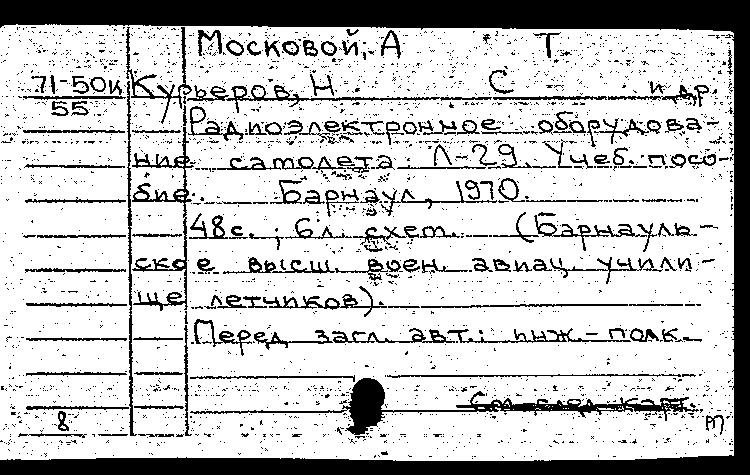 Московой, А Т
71-50к Курьеров, Н С и др.
55
Радиоэлектронное оборудова-
ние самолета Л-29. Учеб. посо-
бие. Барнаул, 1970.
48с.; 6л. схем. (Барнауль-
ское высш. воен. авиац. учили-
ще летчиков).
Перед загл. авт.: инж.-полк.
См. след. карт.
8